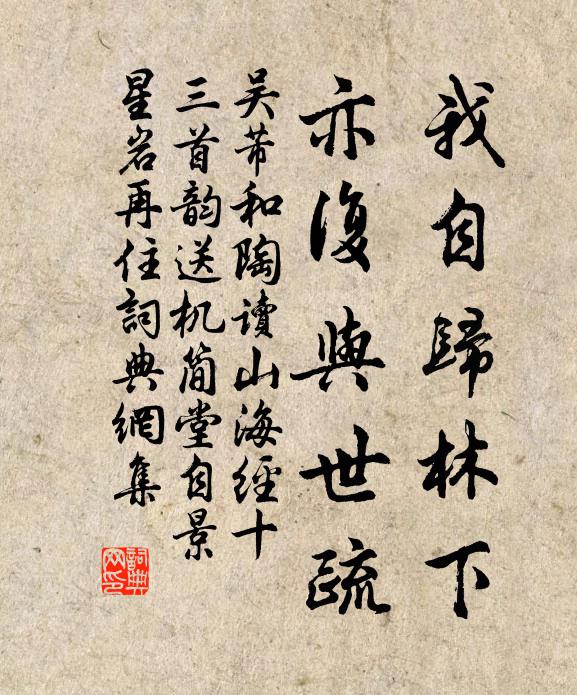 我自歸林下
亦復與世疏
吴芾和陶讀山海經十
三首韵送机简堂自景
星岩再住詞典網集
詞典网印